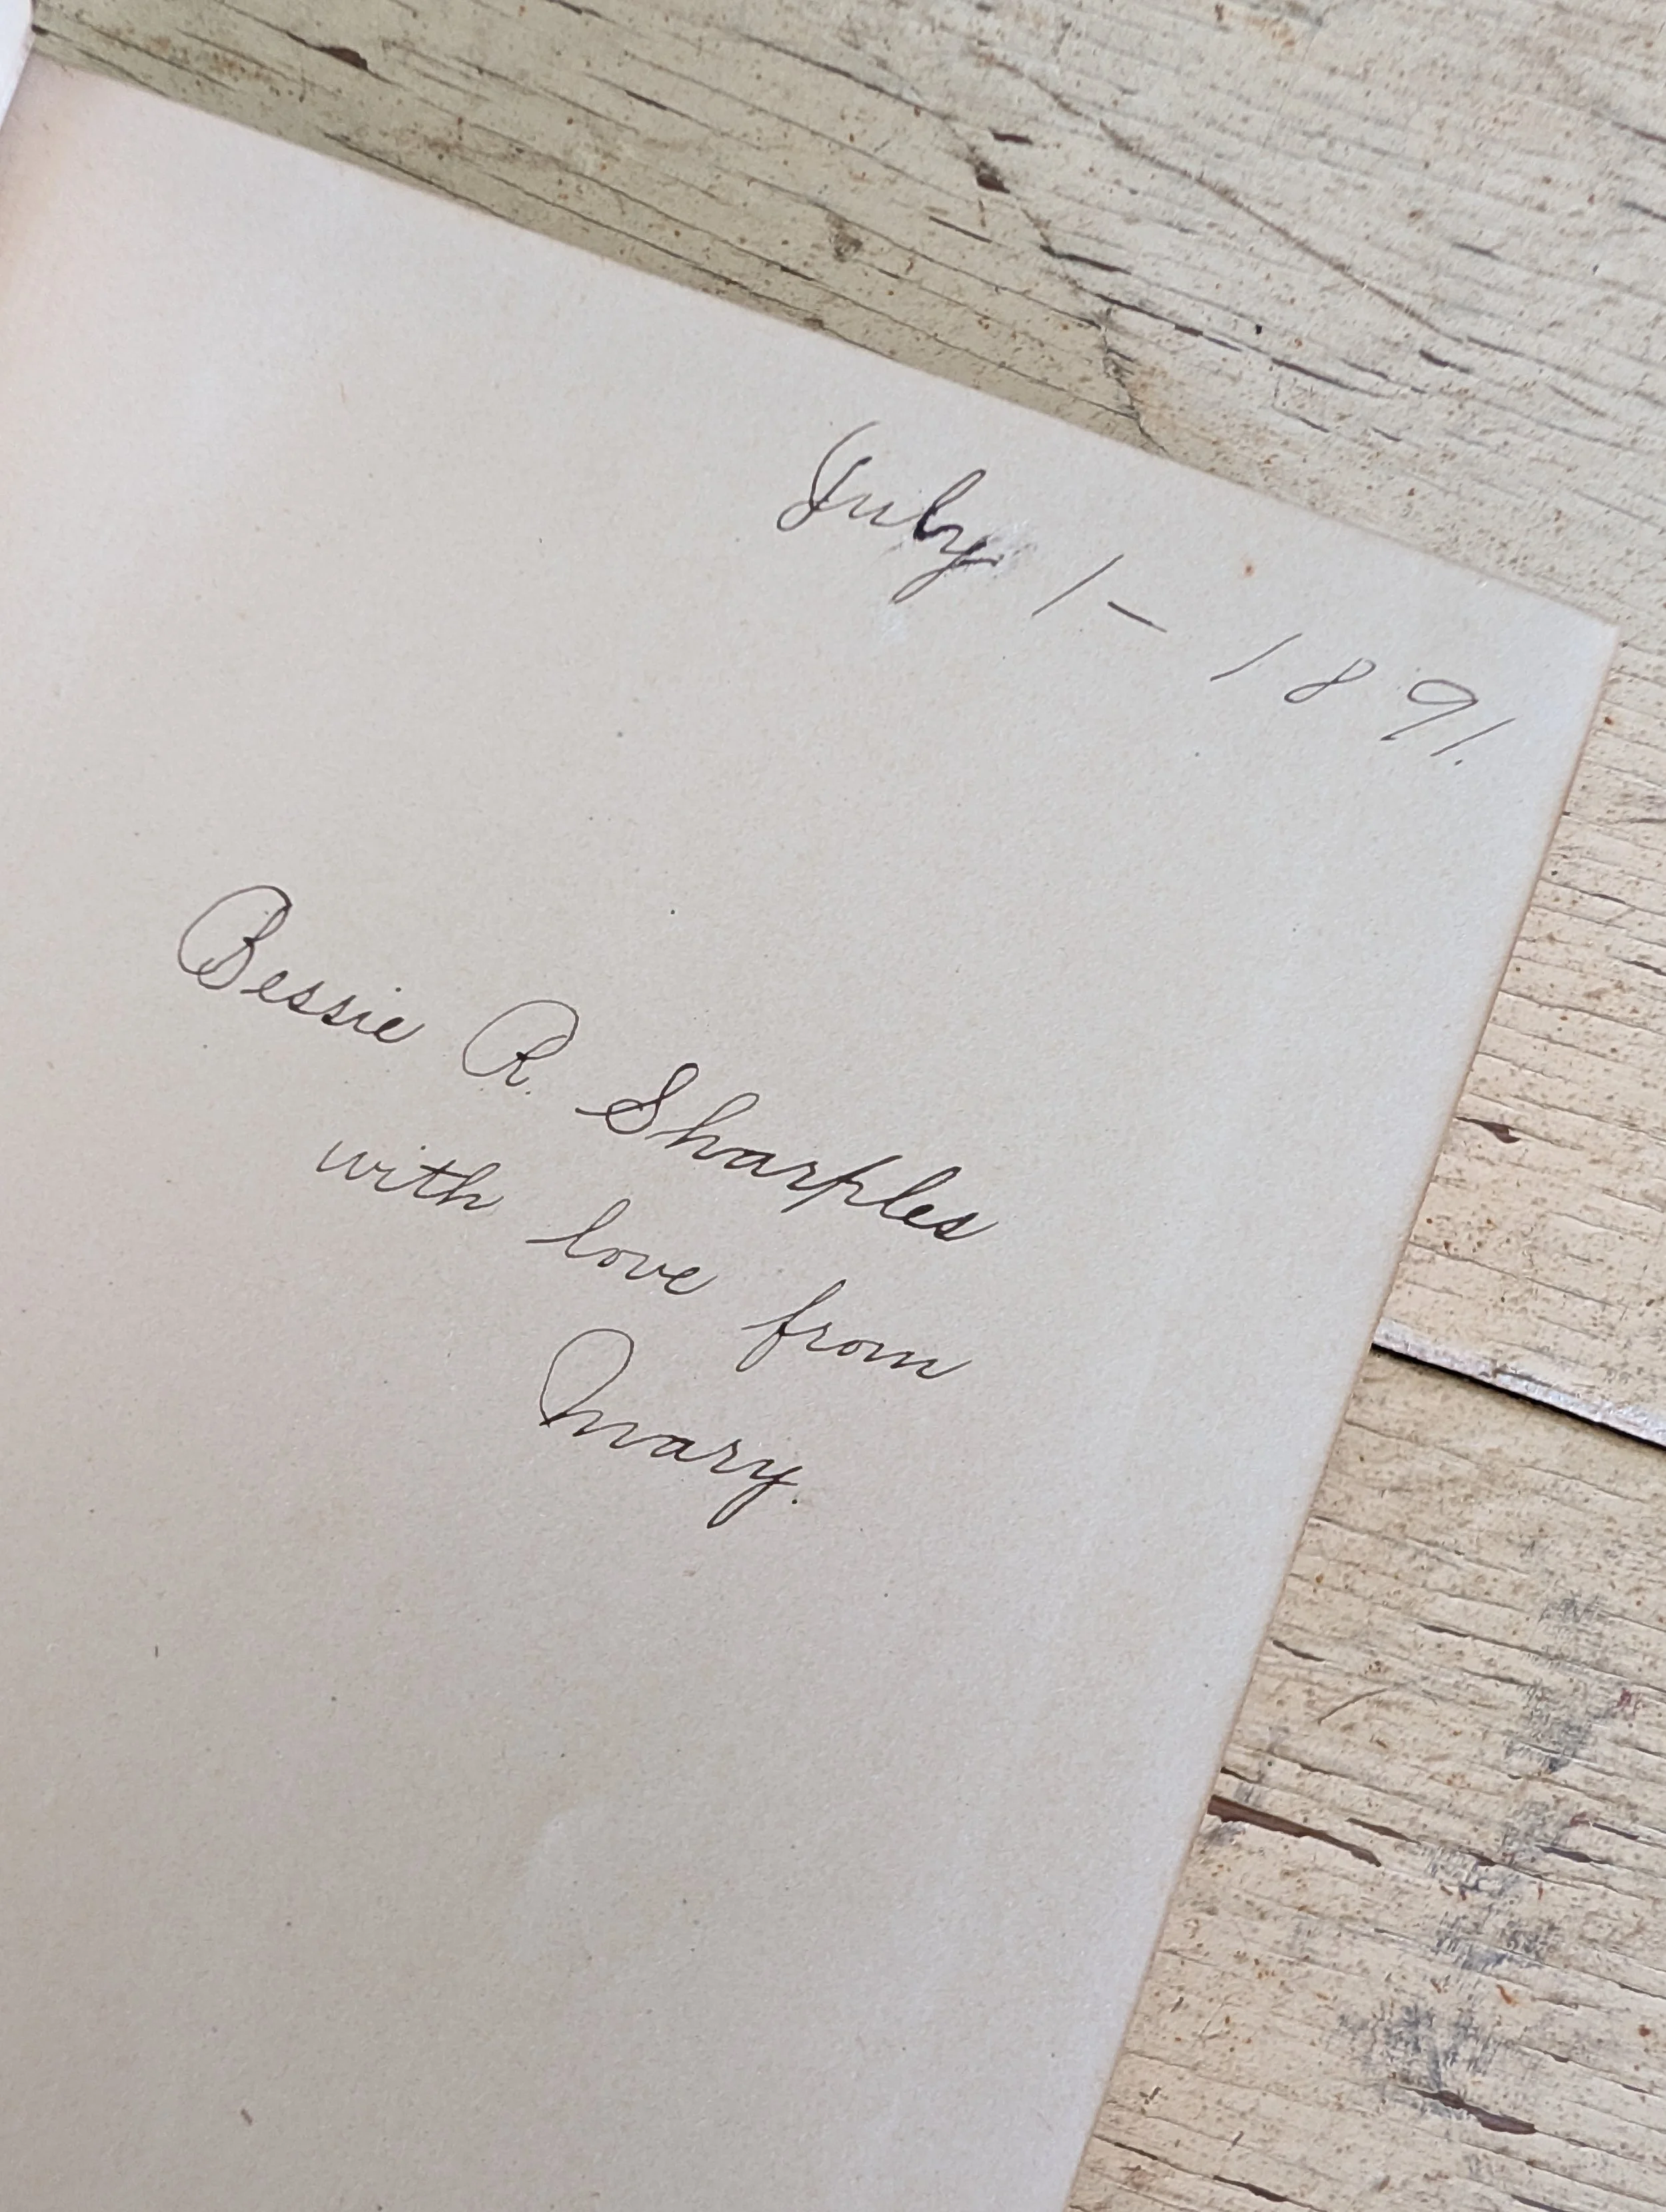 July 1 - 1891.
Bessie R. Sharples
with love from
Mary.